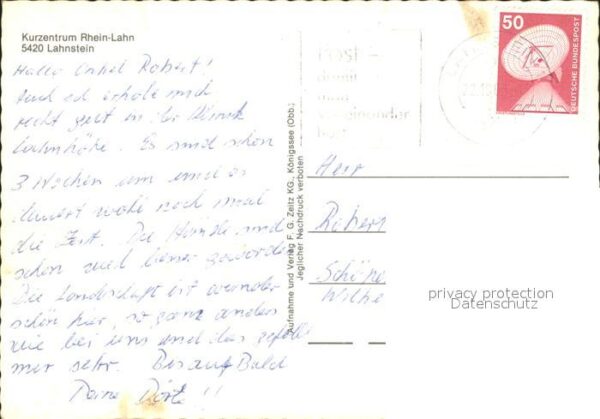 Kurzentrum Rhein-Lahn
5420 Lahnstein
Hallo Onkel Robert!
recht gut in der Klinik
Lahnhöhe. Es sind schon
3 Wochen um und es
dauert wohl noch mal
die Zeit. Die Hände sind
schon viel besser geworden
Die Landschaft ist wunder-
schön hier, so ganz anders
wie bei uns und das gefällt
mir sehr. Bis auf Bald
Deine Dörte!!
Aufnahme und Verlag F. G. Zeitz KG., Königssee (Obb.)
Jeglicher Nachdruck verboten
Post -
damit
man
voneinander
hört
50
DEUTSCHE BUNDESPOST
Herr
Robert
Schöne
privacy protection
Datenschutz